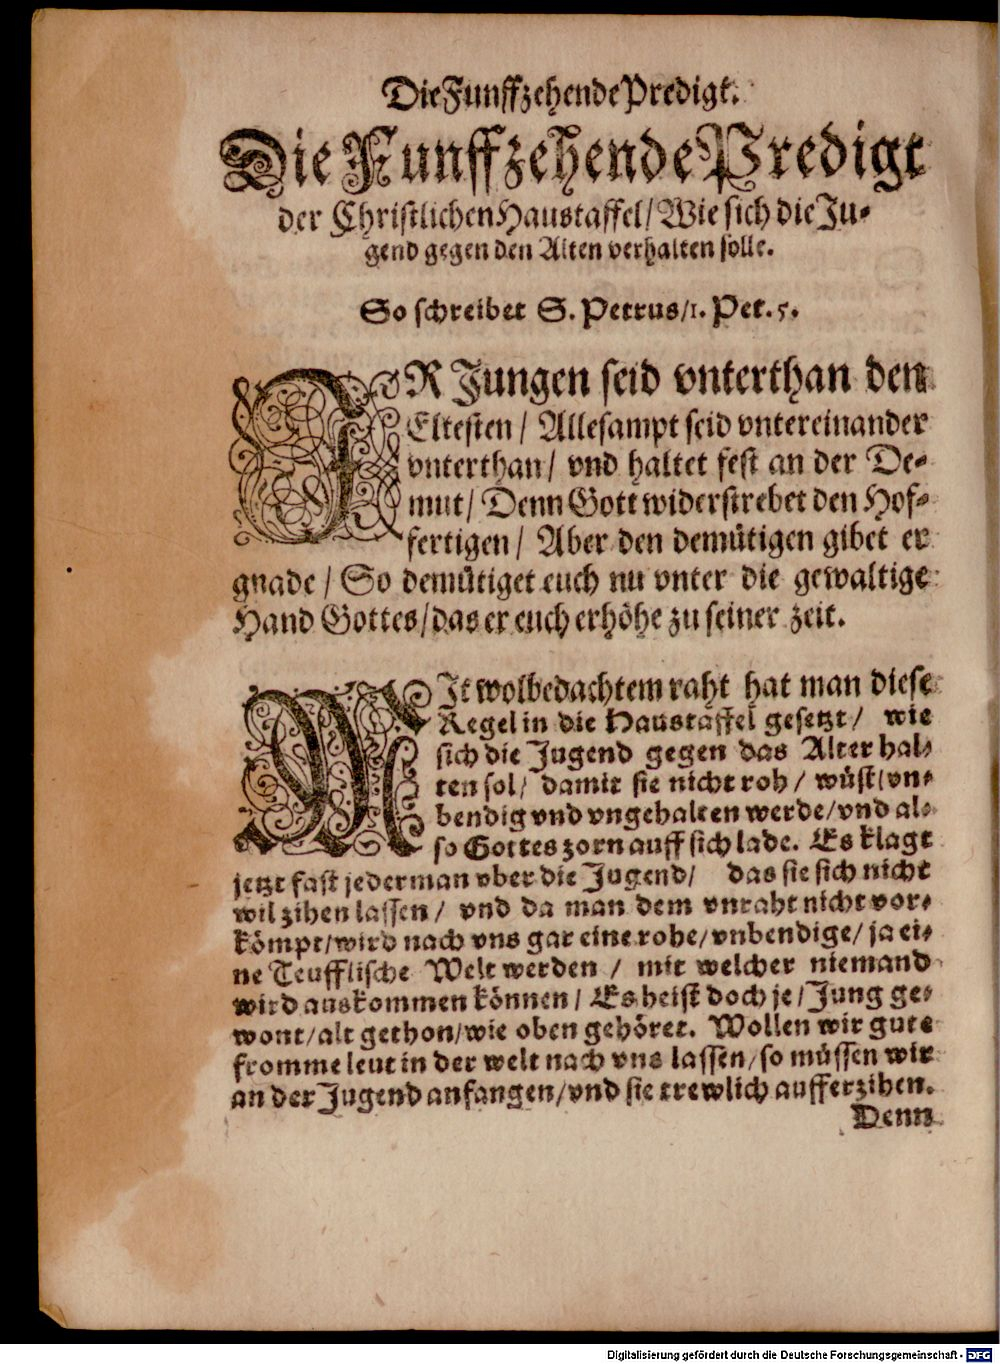 Die Funffzehende Predigt.
Die Funffzehende Predigt
der Christlichen Haustaffel/ Wie sich die Ju-
gend gegen den Alten verhalten solle.
So schreibet S. Petrus/1. Pet. 5.
IR Jungen seid vnterthan den
Eltesten / Allesampt seid vntereinander
vnterthan / vnd haltet fest an der De-
mut / Denn Gott widerstrebet den Hof-
fertigen / Aber den demütigen gibet er
gnade / So demütiget euch nu vnter die gewaltige
Hand Gottes/das er euch erhöhe zu seiner zeit.
MIt wolbedachtem raht hat man diese
Regel in die Haustaffel gesetzt / wie
sich die Jugend gegen das Alter hal-
ten sol / damit sie nicht roh / wüst/vn-
bendig vnd vngehalten werde/vnd al-
so Gottes zorn auff sich lade. Es klagt
jetzt fast jederman vber die Jugend/ das sie sich nicht
wil zihen lassen / vnd da man dem vnraht nicht vor-
kömpt/wird nach vns gar eine rohe/vnbendige/ ja ei-
ne Teufflische Welt werden / mit welcher niemand
wird auskommen können / Es heist doch je / Jung ge-
wont/alt gethon/wie oben gehöret. Wollen wir gute
fromme leut in der welt nach vns lassen/so müssen wir
an der Jugend anfangen/vnd sie trewlich aufferzihen.
Denn
Digitalisierung gefördert durch die Deutsche Forschungsgemeinschaft - DFG